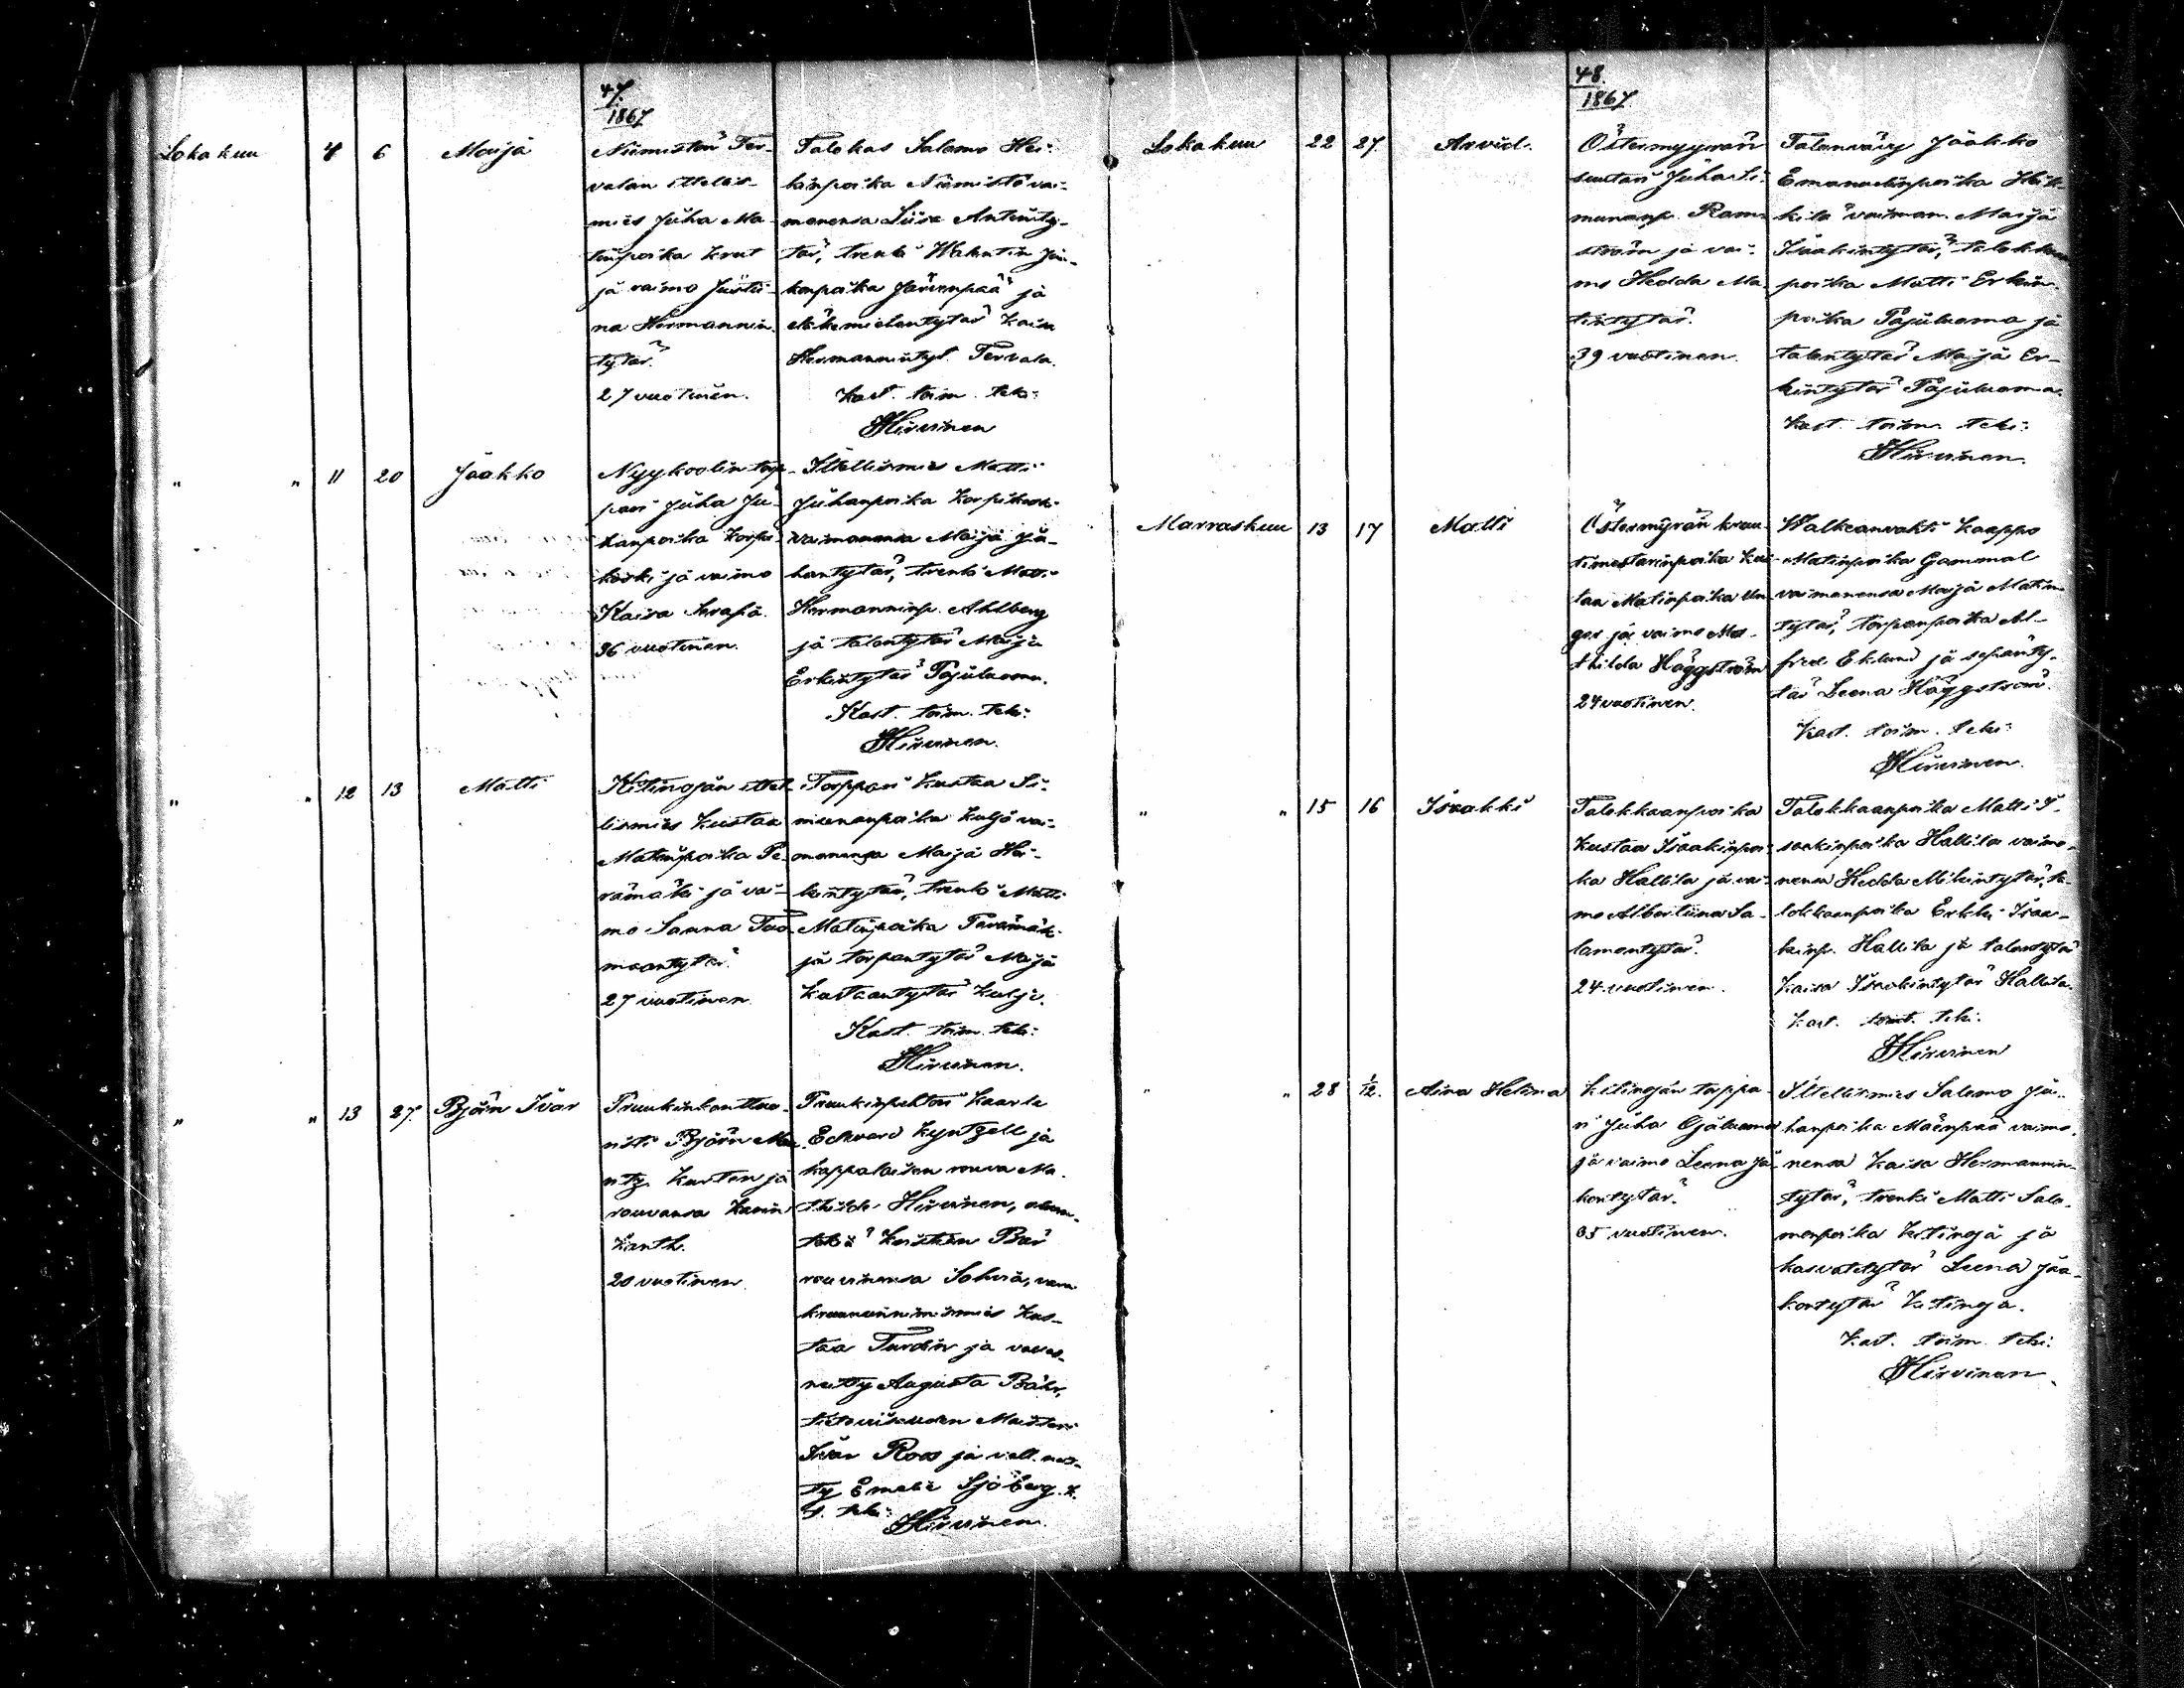 47.
1867
Lokakuu 4 6 Maija
Niemistön Ter-
valan ittelis-
mies Juha Ma-
tinpoika Krut
ja vaimo Justii-
na Hermannin
tytär.
27 vuotinen.
Talokas Salomo Hei-
kinpoika Niemistö vai-
monensa Liisa Antinty-
tär, trenki Walentin Jaa-
konpoika Järvenpää ja
Hermannintyt. Tervala.
Kast. toim. teki:
Hirvinen
" " 11 20 Jaakko
Nyykoolin torp-
pari Juha Ju-
hanpoika Korpi-
koski ja vaimo
Kaisa Serafia.
36 vuotinen.
Itellismies Matti
Juhanpoika Korpikoski
vaimonensa Maija Ju-
hantytär, trenki Matti
Hermanninp. Ahlberg
ja talontytär Maija
Erkintytär Pajuluoma.
Kast. toim. teki:
Hirvinen.
" " 12 13 Matti
Kitinojan ittel-
lismies Kustaa
Matinpoika Pe-
rämäki ja vai-
mo Sanna Tuo-
maantytär.
27 vuotinen.
Torppari Kustaa Si-
monanpoika Kulju vai-
monensa Maija Hei-
kintytär, trenki Matti
Matinpoika Perämäki
ja torpantytär Maija
Kustaantytär Kulju.
Kast. toim. teki:
Hirvinen.
" " 13 27. Björn Ivar
Pruukinkontto-
risti Björn Mau-
ritz Kurten ja
rouvansa Karin
Kanth.
20 vuotinen.
Pruukinpehtori Kaarle
Edward Kyntzell ja
kappalaisen rouva Ma-
thilda Hirvinen,
rouvinensa Sofia, vara
kruununnimismies Kus-
taa Turdin ja
neitty Augusta Bähr,
Maisteri
Ivar Roos ja
ty Emelie Sjöberg. K.
t. teki:
Hirvinen.
48.
1867
Lokakuu 22 27. Arvid.
Östermyyrän
suutari Juha Si-
munanp. Ram-
ström ja vai-
mo Hedda Ma-
tintytär.
39 vuotinen.
Talonvävy Jaakko
Emanuelinpoika Heik-
kilä vaimon. Maija
Isaakintytär, talokkaan
poika Matti Erkin
poika Pajuluoma ja
talontytär Maija Er-
kintytär Pajuluoma.
Kast. toim. teki:
Hirvinen.
Marraskuu 13 17 Matti
Östermyrän kruu-
Matinpoika
ja vaimo Ma-
thilda Häggström
24 vuotinen.
Walkeanvahti Kaappo
Matinpoika Gammal
vaimonensa Maija Matin
tytär, torpanpoika Al-
fred Eklund ja sepänty-
tär Leena Häggström.
Kast. toim. teki:
Hirvinen.
" " 15 16 Isaakki
Talokkaanpoika
Kustaa Isaakinpoi-
ka Hallila ja vai-
mo Albertiina Sa-
lamontytär.
24 vuotinen.
Talokkaanpoika Matti I-
saakinpoika Hallila vaimo-
nensa Hedda Mikintytär, ta-
lokkaanpoika Erkki Isaa-
kinp. Hallila ja talontytär
Kaisa Isaakintytär Hallila.
Kast. toim. teki.
Hirvinen
" " 28 1/12. Aina Helena
Kitinojan torppa-
ri Juha Ojaluoma
ja vaimo Leena Jaa-
kontytär.
35 vuotinen.
Ittellismies Salomo Ju-
hanpoika Mäenpää vaimo-
nensa Kaisa Hermannin-
tytär, trenki Matti Salo-
monpoika Kitinoja ja
kasvattitytär Leena Jaa-
kontytär Kitinoja.
Kast. toim. teki:
Hirvinen.